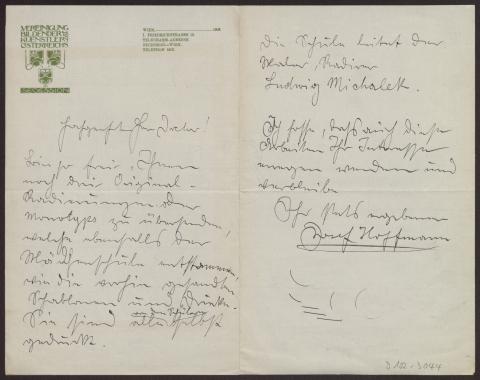 VEREINIGUNG
BILDENDER
KUENSTLER
ÖSTERREICHS
SECESSION
WIEN, 190
I. FRIEDRICHSTRASSE 12
TELEGRAMM-ADRESSE
SECESSION—WIEN.
Hochgeehrter Herr Doctor!
Bin so frei, Ihnen
noch drei Original-
Radierungen oder
Monotyps zu übersenden,
welche ebenfalls der
Mädchenschule entstammen
wie die vorhin gesandten
Schablonen und Drucke.
von den Schülern
Sie sind alle selbst
gedruckt.
Die Schule leitet der
Maler, Radirer
Ludwig Michalek.
Ich hoffe, dass auch diese
Arbeiten Ihr Interesse
erregen werden und
verbleibe
Ihr stets ergebener
Josef Hoffmann
D 102.-3044